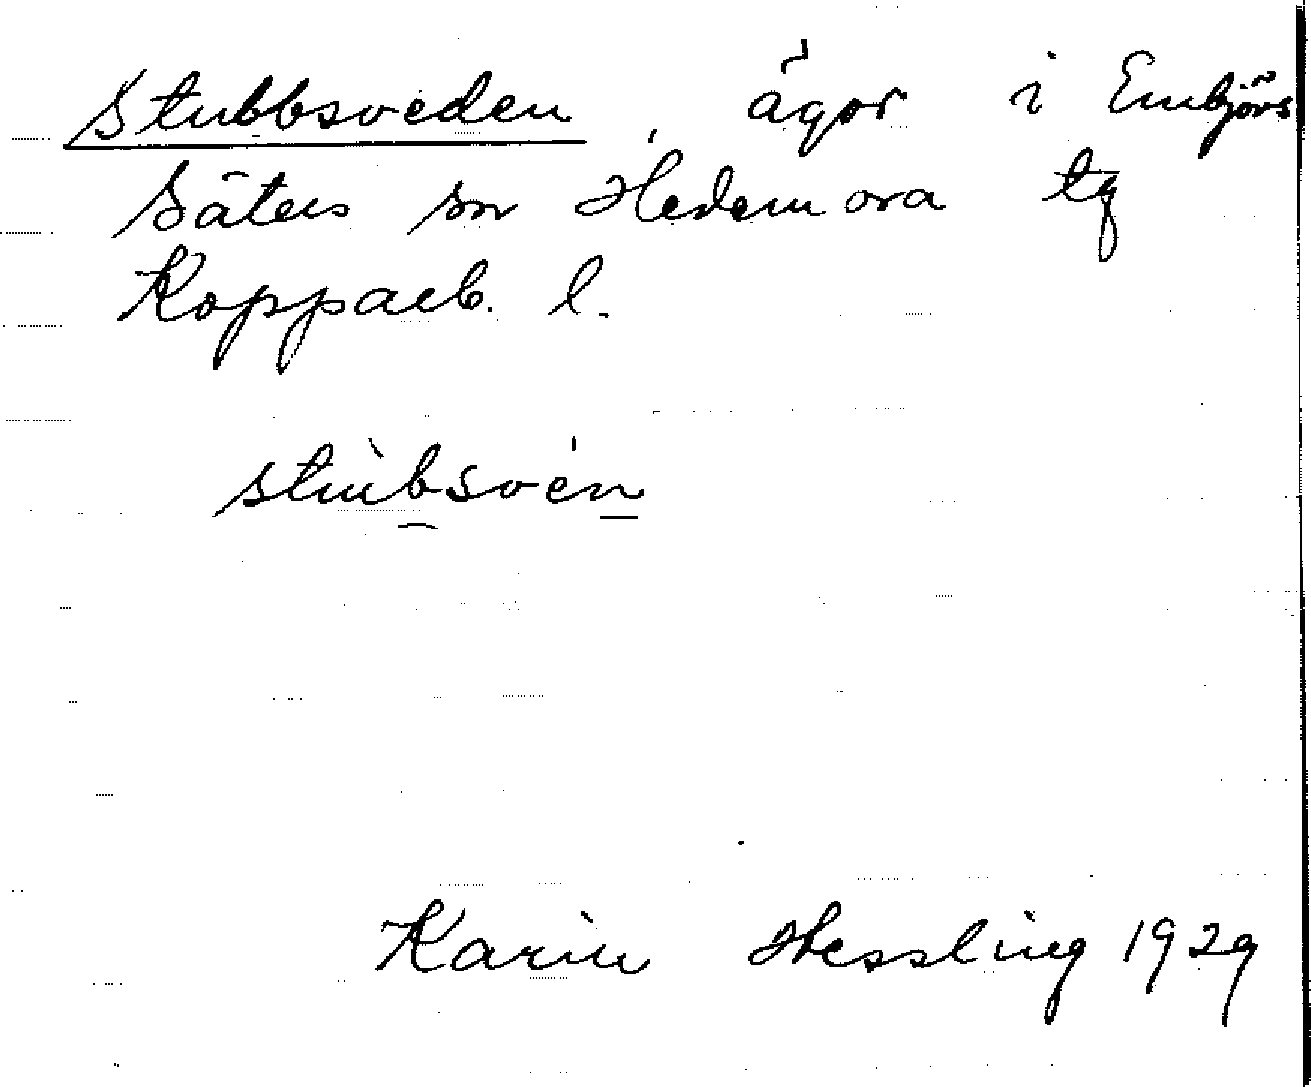 Stubbsveden, ägor i Enbjörs
Säters sn Hedemora tg
Kopparb. l.
stùbsvén
Karin Hessling 1929